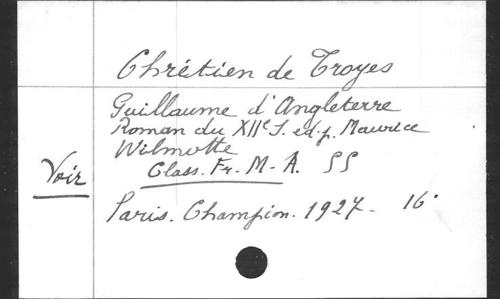 Chrétien de Troyes
Guillaume d'Angleterre
Roman du XIIe S. éd. p. Maurice
Wilmotte
Voir Class. Fr. M. A. 55
Paris. Champion. 1927 - 16°